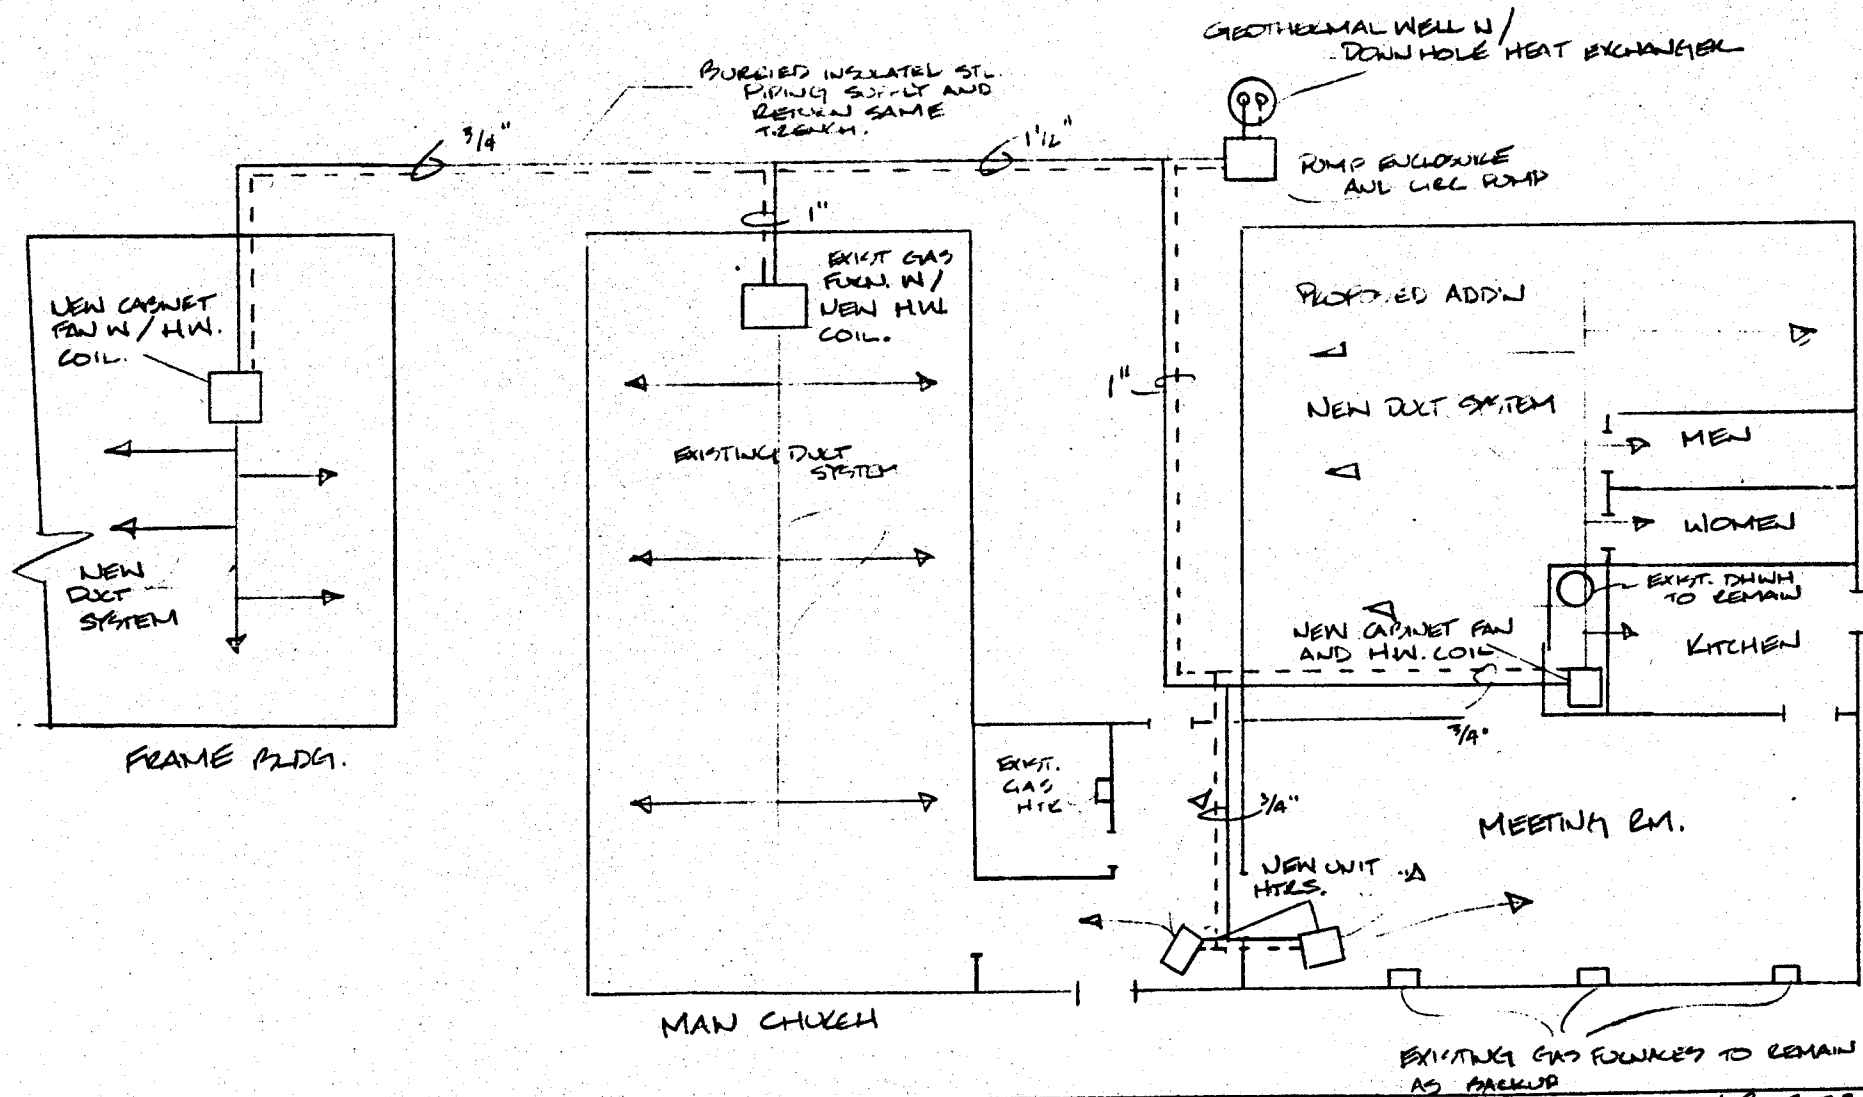 GEOTHERMAL WELL W/
DOWNHOLE HEAT EXCHANGER
BURRIED INSULATED STL.
PIPING SUPPLY AND
RETURN SAME
TRENCH.
3/4"
1 1/2"
PUMP ENCLOSURE
AND CIRC PUMP
1"
EXIST GAS
FURN. W/
NEW HW.
COIL.
NEW CABINET
FAN W/ H.W.
COIL.
PROPOSED ADD'N
1"
NEW DUCT SYSTEM
MEN
EXISTING DUCT
SYSTEM
WOMEN
NEW
DUCT
SYSTEM
EXIST. DHWH
TO REMAIN
NEW CABINET FAN
AND H.W. COIL
KITCHEN
3/4"
FRAME BLDG.
EXIST.
GAS
HTR
3/4"
MEETING RM.
NEW UNIT
HTRS.
MAN CHURCH
EXISTING GAS FURNACES TO REMAIN
AS BACKUP